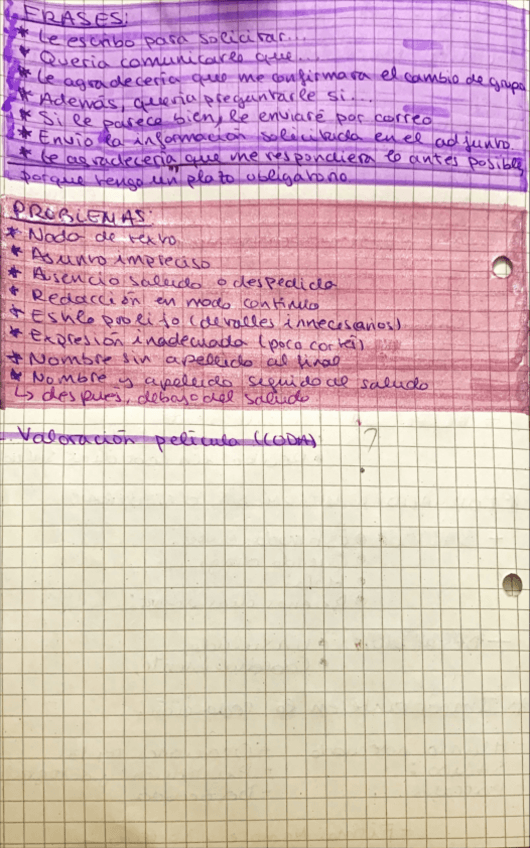 FRASES:
* Le escribo para solicitar...
* Quería comunicarle que...
* Le agradecería que me confirmara el cambio de grupo
* Además, quería preguntarle si...
* Si le parece bien, le enviaré por correo
* Envío la información solicitada en el adjunto
* Le agradecería que me respondiera lo antes posible,
porque tengo un plazo obligatorio
PROBLEMAS:
* de texto
* Asunto impreciso
* Ausencia saludo o despedida
* Redacción en modo continuo
* Estilo prolijo (detalles innecesarios)
* Expresión inadecuada (poco cortés)
* Nombre sin apellido al final
* Nombre y apellido seguido al saludo
↳ después, debajo del saludo
- Valoración película (CODA) ?